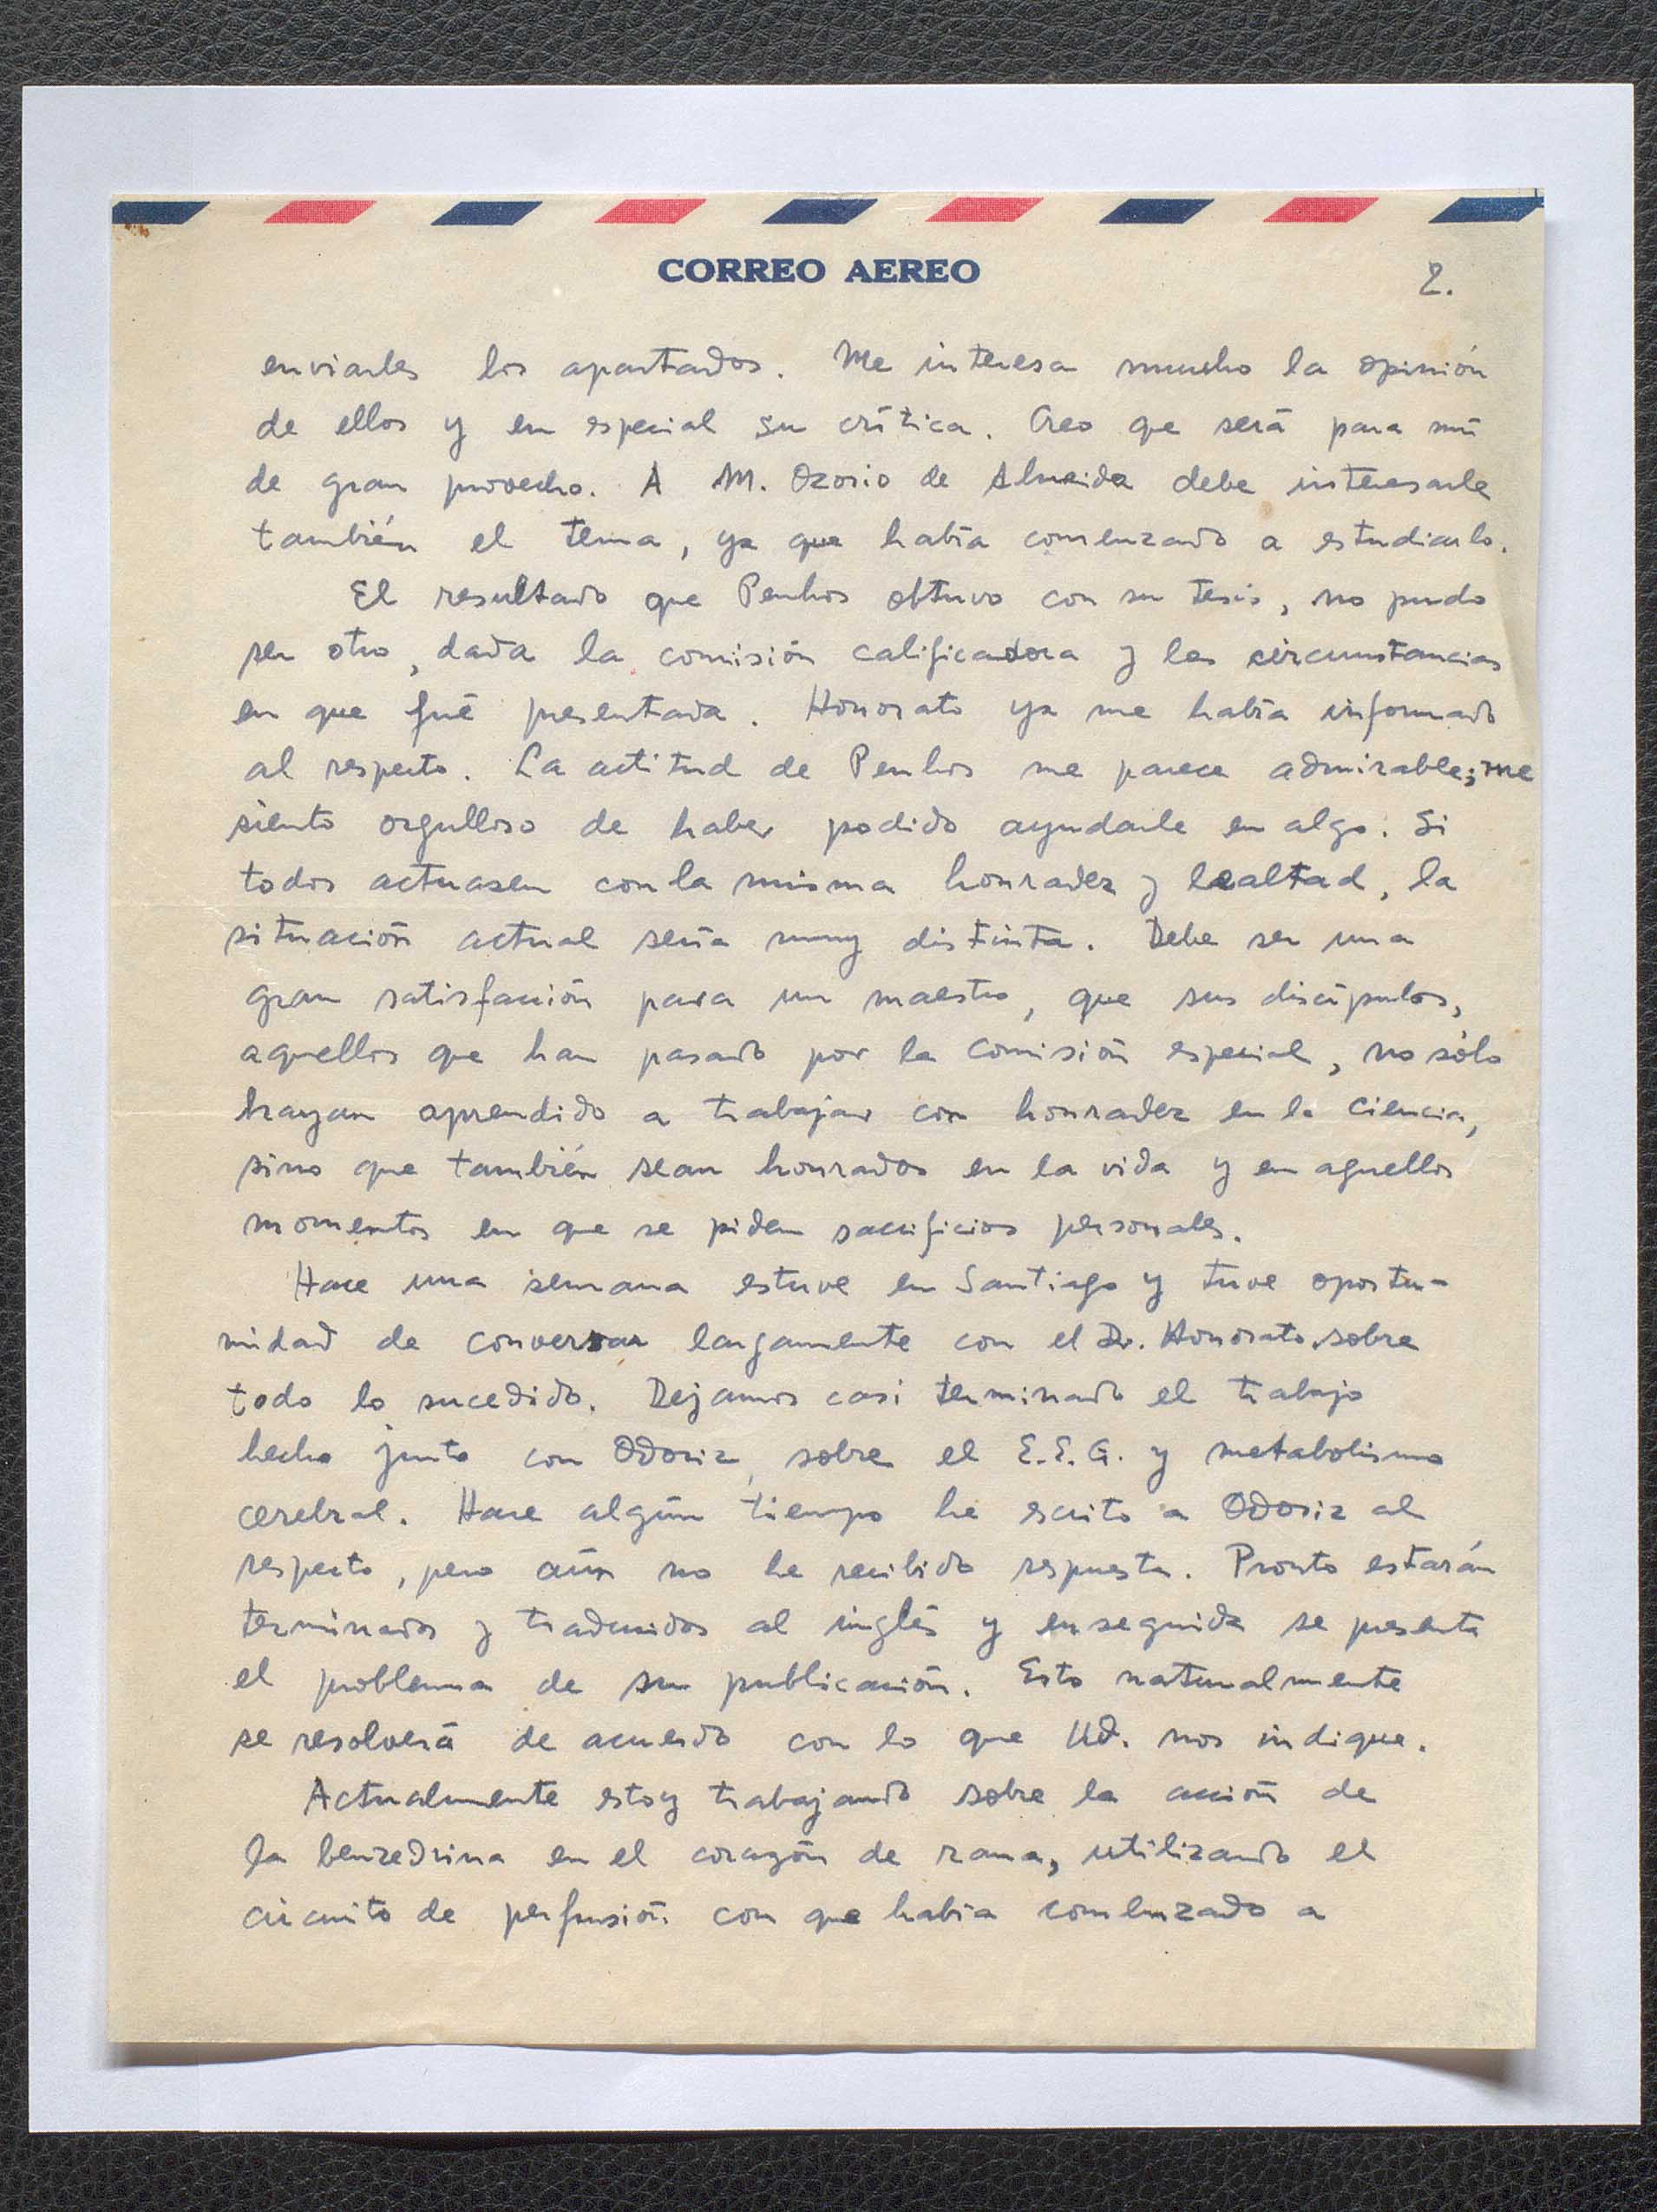 CORREO AEREO
2.
enviarles los apartados. Me interesa mucho la opinión
de ellos y en especial su crítica. Creo que será para mí
de gran provecho. A M. Ozorio de Almeida debe interesarle
también el tema, ya que había comenzado a estudiarlo.
El resultado que Penhos obtuvo con su tesis, no pudo
ser otro, dada la comisión calificadora y las circunstancias
en que fué presentada. Honorato ya me había informado
al respecto. La actitud de Penhos me parece admirable; me
siento orgulloso de haber podido ayudarle en algo. Si
todos actuasen con la misma honradez y lealtad, la
situación actual sería muy distinta. Debe ser una
gran satisfacción para un maestro, que sus discípulos,
aquellos que han pasado por la comisión especial, no sólo
hayan aprendido a trabajar con honradez en la ciencia,
sino que también sean honrados en la vida y en aquellos
momentos en que se piden sacrificios personales.
Hace una semana estuve en Santiago y tuve oportu-
nidad de conversar largamente con el Dr. Honorato sobre
todo lo sucedido. Dejamos casi terminado el trabajo
hecho junto con Odoriz, sobre el E.E.G. y metabolismo
cerebral. Hace algún tiempo he escrito a Odoriz al
respecto, pero aún no he recibido respuesta. Pronto estarán
terminados y traducidos al inglés y enseguida se presenta
el problema de su publicación. Esto naturalmente
se resolverá de acuerdo con lo que Ud. nos indique.
Actualmente estoy trabajando sobre la acción de
la benzedrina en el corazón de rana, utilizando el
circuito de perfusión con que había comenzado a